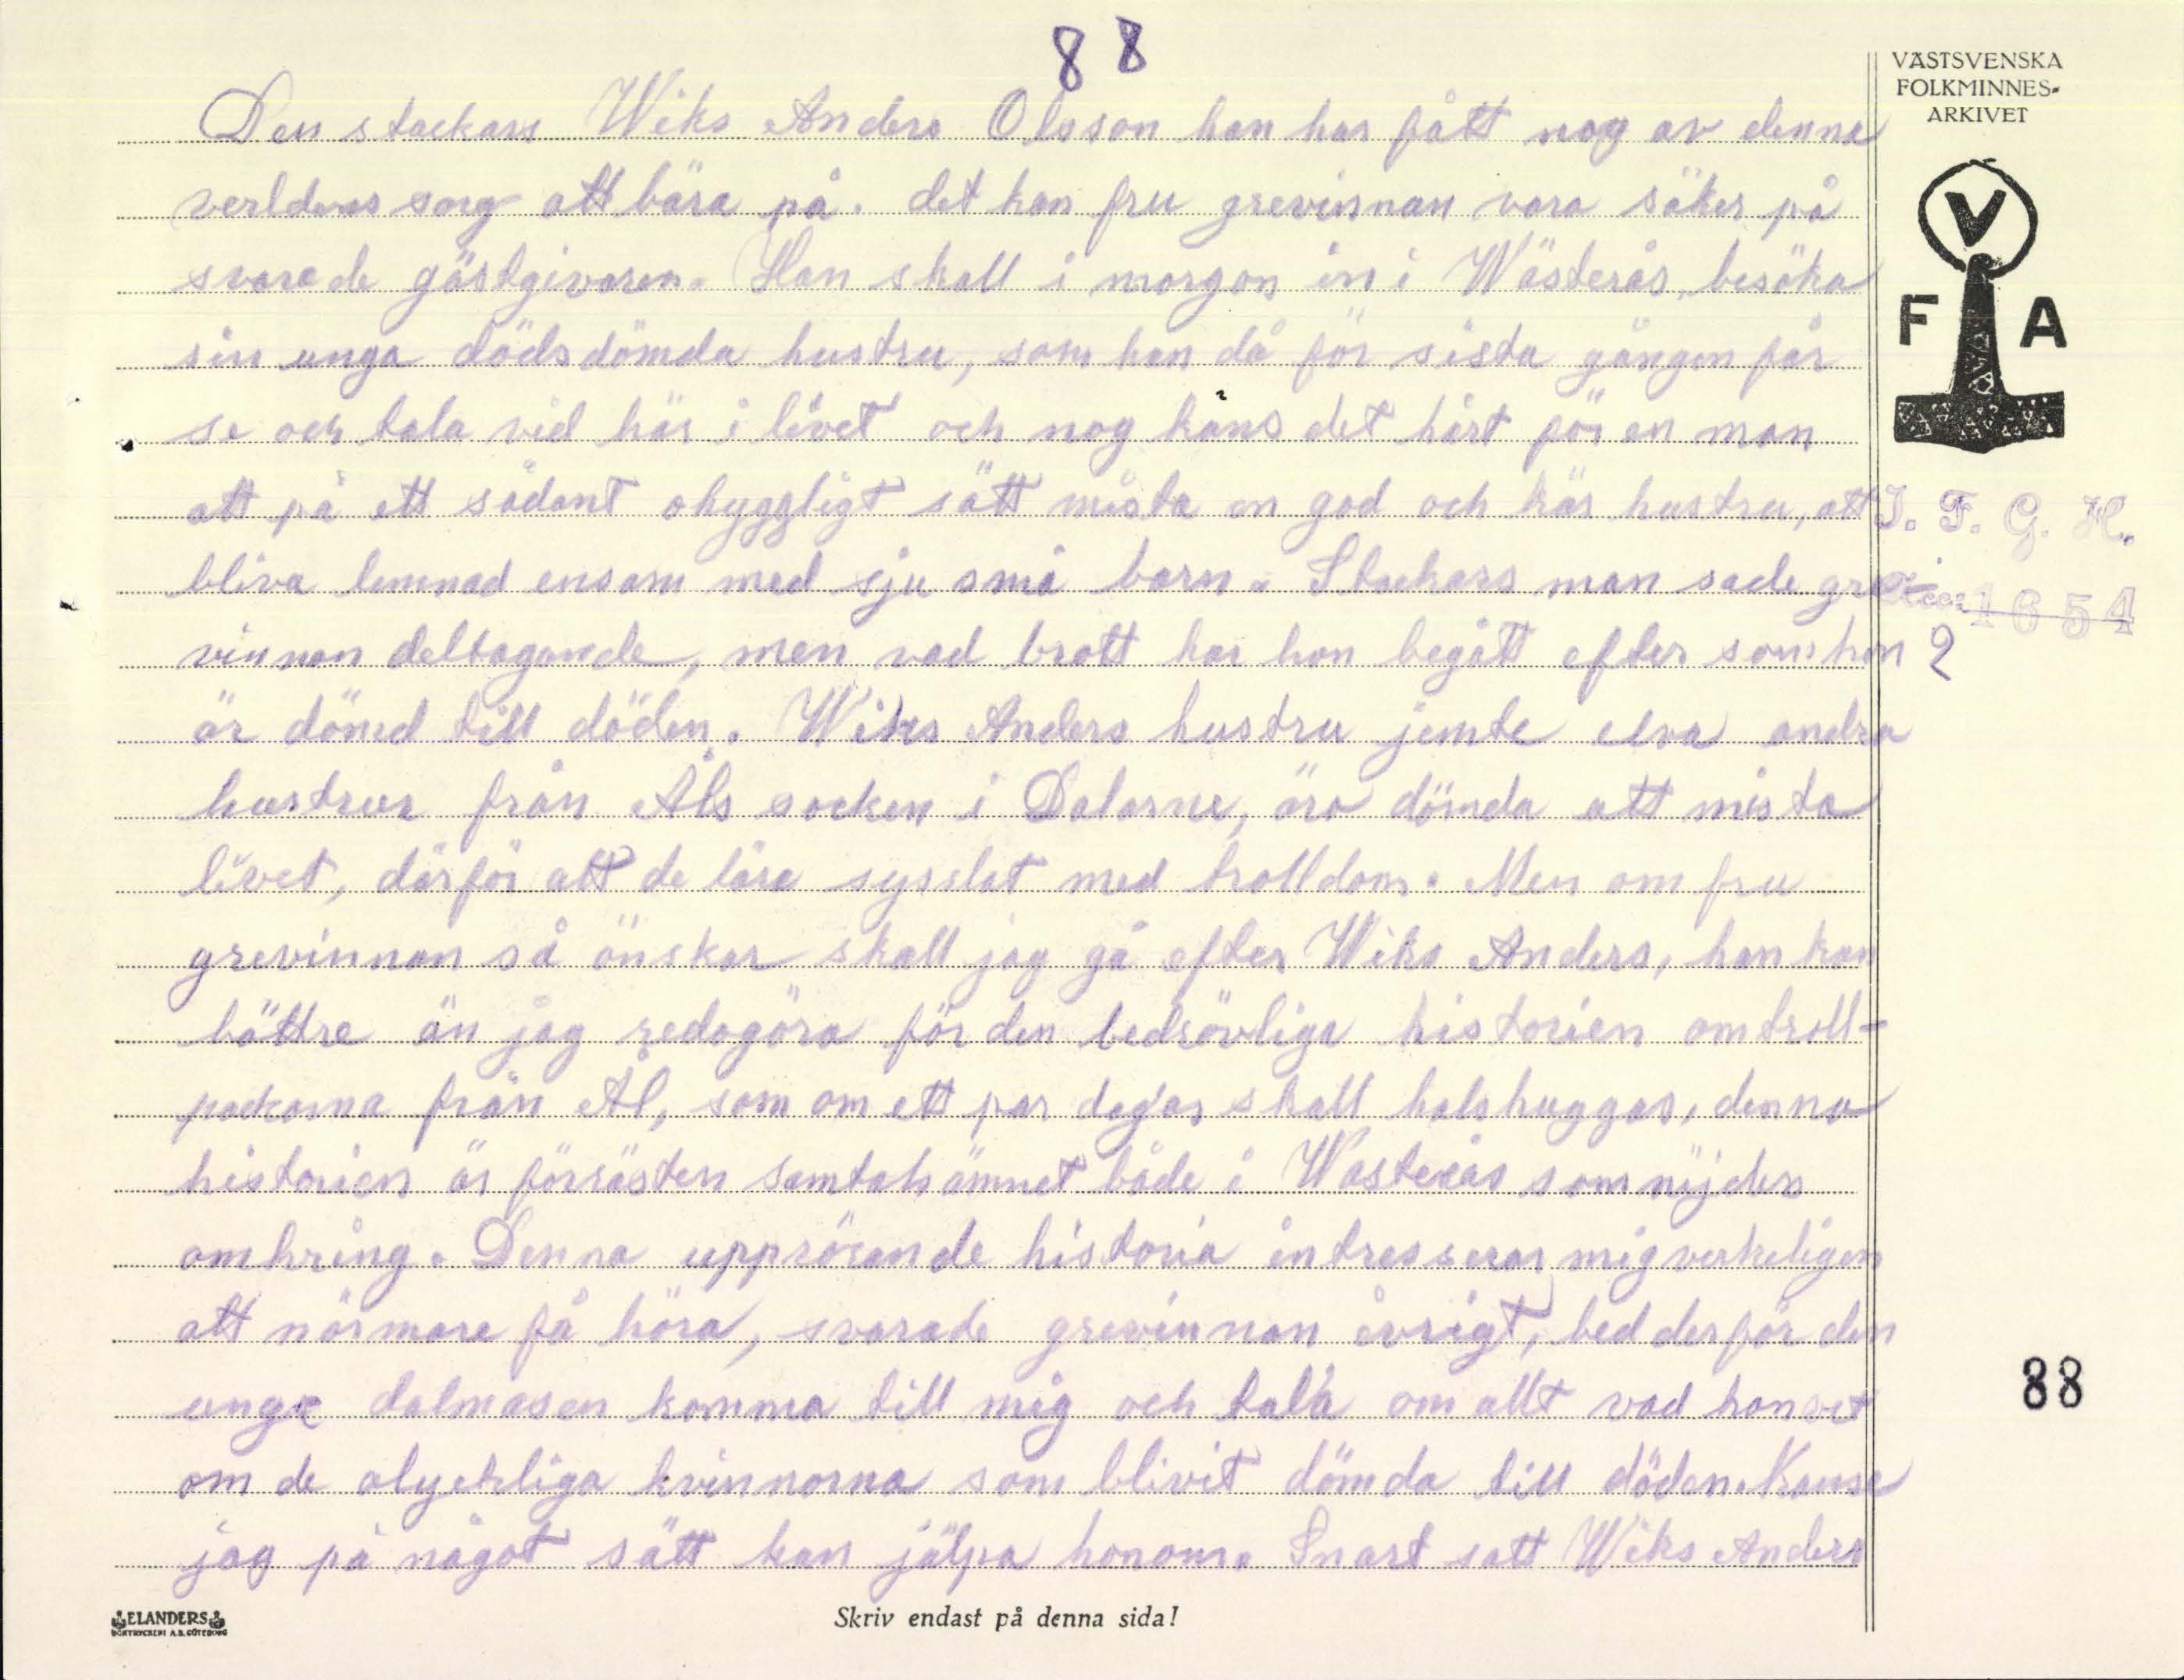 88
VÄSTSVENSKA
FOLKMINNES-
ARKIVET
V
F A
Den stackars Wiks Anders Olsson han har fått nog av denna
verldenes sorg att bära på. det kan fru grevinnan vara säker på
svarade gästgivaren. Han skall i morgon in i Wästerås, besöka
sin unga dödsdömda hustru, som han då för sista gången får
se och tala vid här i livet och nog käns det hårt för en man
att på ett sådant ohyggligt sätt mista en god och kär hustru, att
bliva lemnad ensam med sju små barn. Stackars man sade gre-
vinnan deltagande, men vad brott har hon begått efter som hon
är dömd till döden. Wiks Anders hustru jemte elva andra
hustrur från Åls socken i Dalarne, äro dömda att mista
livet, därför att de lära sysslat med trolldom. Men om fru
grevinnan så önskar skall jag gå efter Wiks Anders, han kan
bättre än jag redogöra för den bedrövliga historien om troll-
packorna från Ål, som om ett par dagar skall halshuggas, denna
historien är förrästen samtalsämnet både i Wästerås som nijden
omkring. Denna upprörande historia intresserar mig verkeligen
att närmare få höra, svarade grevinnan ivrigt, bed derför den
unge dalmasen komma till mig och tala om allt vad han vet
om de olyckliga kvinnorna som blivit dömda till döden. Kanse
jag på något sätt kan jälpa honom. Snart satt Wiks Anders
I. F. G. H.
Acc. 1654
?
88
ELANDERS
BOKTRYCKERI A.B. GÖTEBORG
Skriv endast på denna sida!